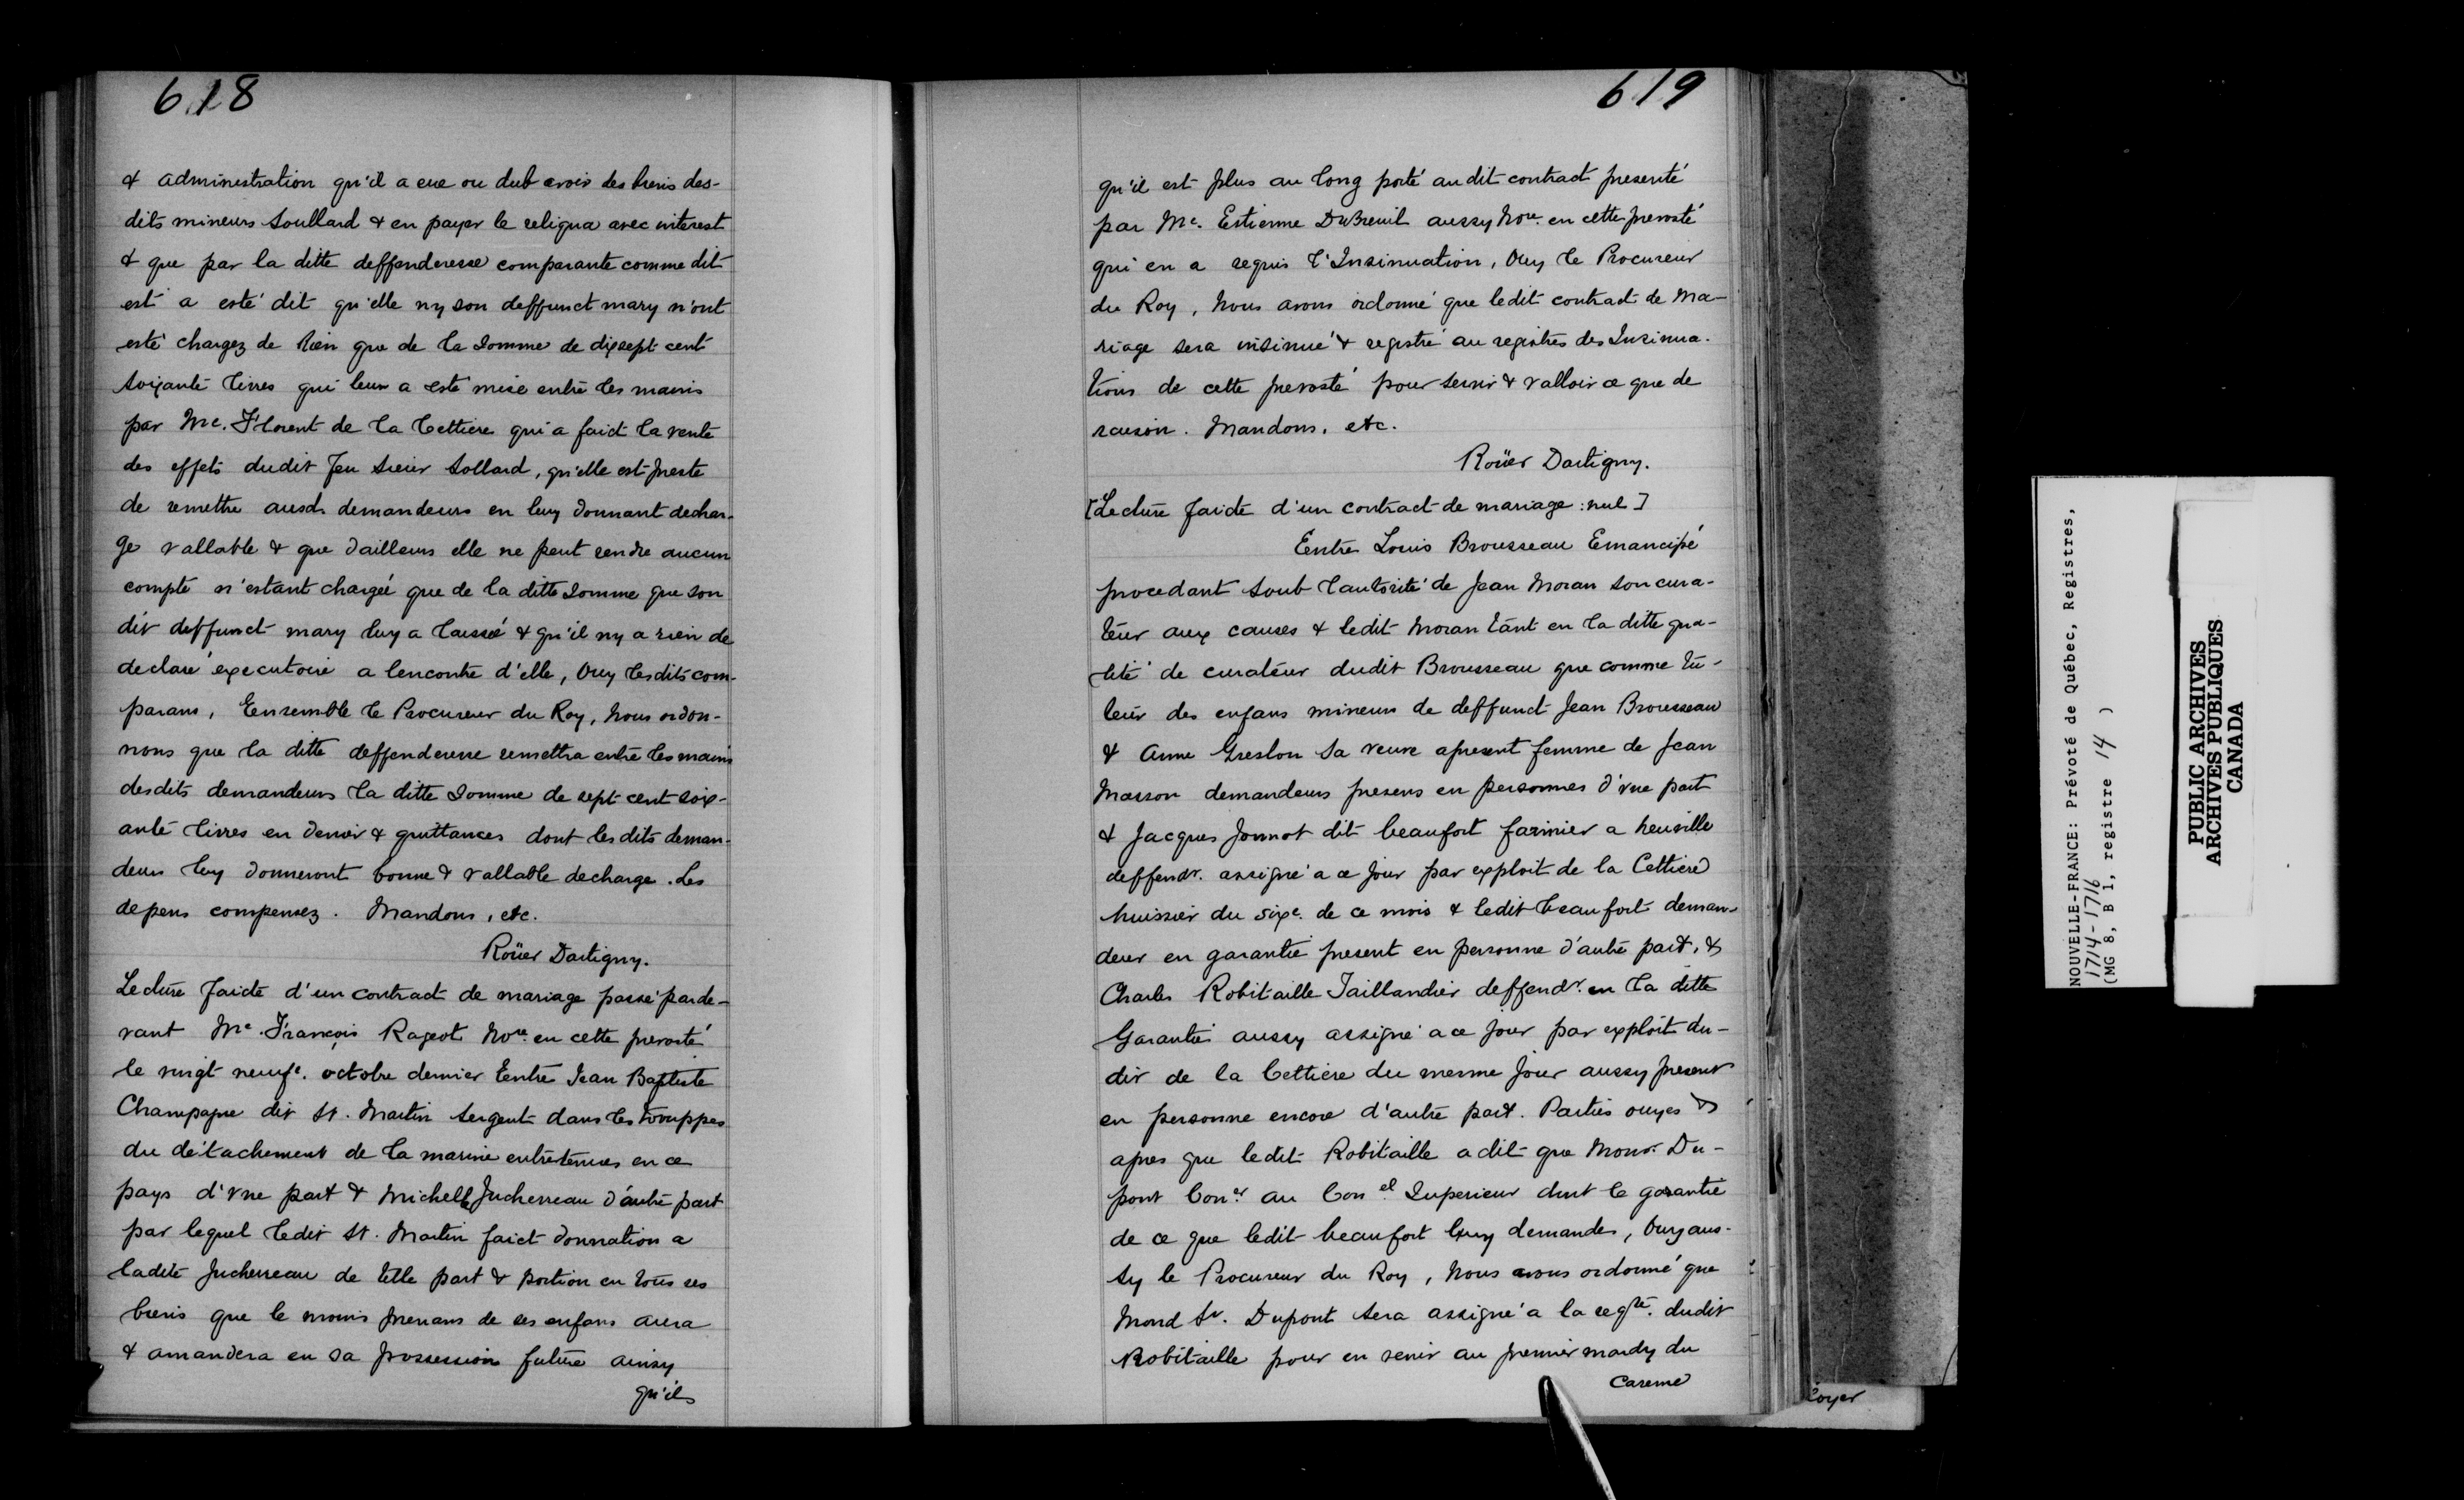 618
& administration qu'il a eue ou dub avoir des biens des-
dits mineurs Soullard & en payer le reliqua avec interest
& que par la ditte deffenderesse comparante comme dit
est a esté dit qu'elle ny son deffunct mary n'ont
esté chargez de rien que de la somme de dixsept cent
soixante livres qui leur a esté mise entre les mains
par Me. Florent de la Cettiere qui a faict la vente
des effets dudit feu sieur Sollard, qu'elle est preste
de remettre ausd. demandeurs en luy donnant dechar-
ge vallable & que dailleurs elle ne peut rendre aucun
compte n'estant chargée que de la ditte somme que son
dit deffunct mary luy a laissé & qu'il ny a rien de
declaré executoire a lencontre d'elle, Ouy lesdits com-
parans, Eensemble le Procureur du Roy, Nous ordon-
nons que la ditte deffenderesse remettra entre les mains
desdits demandeurs la ditte somme de sept cent soix-
ante livres en denier & quittances dont lesdits deman-
deurs luy donneront bonne & vallable decharge. Les
depens compensez. Mandons, etc.
Roüer Dartigny.
Lecture faicte d'un contract de mariage passé parde-
vant Me. François Rageot Nore. en cette prevosté
le vingt neufe. octobre dernier Eentre Jean Baptiste
Champagne dit St. Martin sergent dans les trouppes
du détachement de la marine entretenues en ce
pays d'vne part & Michelle Juchereau d'autre part
par lequel ledit St. Martin faict donnation a
ladite Juchereau de telle part & portion en tous ses
biens que le moins prenans de ses enfans aura
& amandera en sa possession future ainsy
qu'il
619
qu'il est plus au long porté audit contract presenté
par Me. Estienne DuBreuil aussy Nore. en cette prevosté
qui en a requis l'Insinuation, Ouy le Procureur
du Roy, Nous avons ordonné que ledit contract de Ma-
riage sera insinué & registré au registres des Insinua-
tions de cette prevosté pour servir & valloir ce que de
raison. Mandons, etc.
Roüer Dartigny.
[Lecture faicte d'un contract de mariage : nul]
Eentre Louis Brousseau Emancipé
procedant soub l'autorité de Jean Moran son cura-
teur aux causes & ledit Moran tant en la ditte qua-
lité de curateur dudit Brousseau que comme tu-
teur des enfans mineurs de deffunct Jean Brousseau
& Anne Greslon sa veuve apresent femme de Jean
Masson demandeurs presens en personnes d'vne part
& Jacques Jonnot dit beaufort farinier a heuville
deffendr. assigné a ce jour par exploit de la Cettiere
huissier du sixe. de ce mois & ledit beaufort deman-
deur en garantie present en personne d'autre part, &
Charles Robitaille Taillandier deffendr. en la ditte
Garantie aussy assigné a ce jour par exploit du-
dit de la Cettiere du mesme jour aussy present
en personne encore d'autre part. Parties ouyes &
apres que ledit Robitaille a dit que Monsr. Du-
pont Coner. au Conel. Superieur doit le garantir
de ce que ledit beaufort luy demande, Ouy aus-
sy le Procureur du Roy, Nous avons ordonné que
Mond Sr. Dupont sera assigné a la reqte. dudit
Robitaille pour en venir au premier mardy du
Careme
loyer
NOUVELLE-FRANCE: Prévoté de Québec, Registres,
1714-1716
(MG 8, B 1, registre 14 )
PUBLIC ARCHIVES
ARCHIVES PUBLIQUES
CANADA